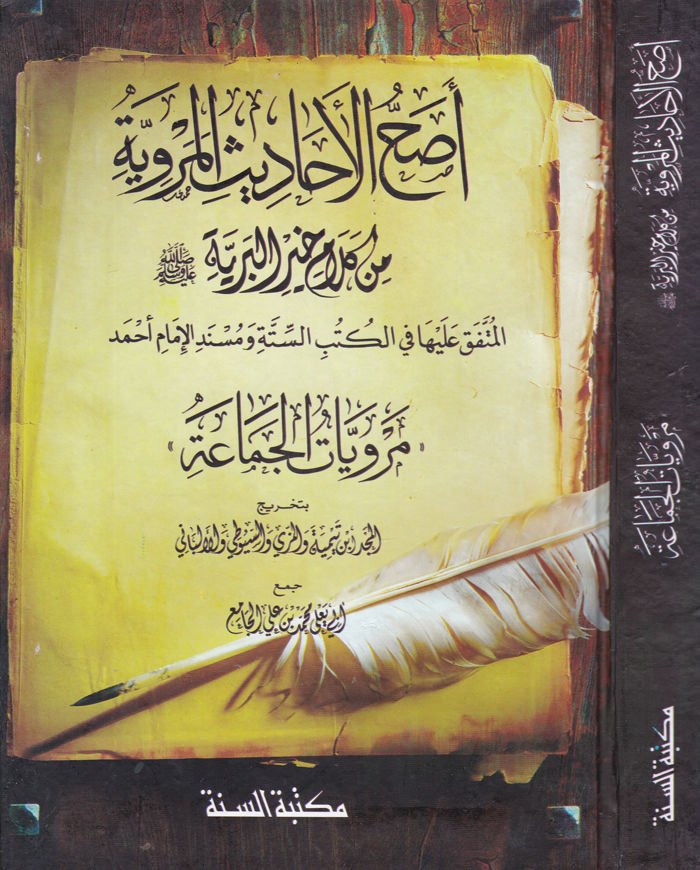 أَصَحُّ الأَحَادِيثِ المَرْوِيَّةِ
مِنْ كَلَامِ خَيْرِ البَرِيَّةِ ﷺ
المُتَّفَق عَلَيْهَا في الكُتُبِ السِّتَّةِ وَمُسْنَدِ الإِمَامِ أَحْمَد
«مَرْوِيَّاتُ الجَمَاعَةِ»
بتخريج
المجد ابن تيمية والمزي والسيوطي والألباني
جمع
أبي يعلى محمد بن علي الجامع
مكتبة السنة
أصح الأحاديث المروية
من كلام خير البرية ﷺ
«مرويات الجماعة»
مكتبة السنة